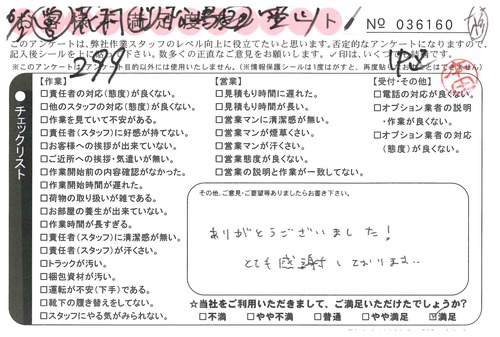 ト
No 036160
このアンケートは、弊社作業スタッフのレベル向上に役立てたいと思います。否定的なアンケートになりますので、
279
1P8
※このアンケートはアンケート目的以外には使用いたしません。
【作業】
□責任者の対応(態度)が良くない。
□他のスタッフの対応(態度)が良くない。
□作業を見ていて不安がある。
□責任者(スタッフ)に好感が持てない。
□お客様への挨拶が出来ていない。
□ご近所への挨拶・気遣いが無い。
□作業開始前の内容確認がなかった。
□作業開始時が遅れた。
□荷物の取り扱いが雑である。
□お部屋の養生が出来ていない。
□作業時間が長すぎる。
□責任者(スタッフ)に清潔感が無い。
□責任者(スタッフ)が汗くさい。
□トラックが汚い。
□梱包資材が汚い。
□運転が不安(下手)である。
□靴下の履き替えをしてない。
□スタッフにやる気がみられない。
【営業】
□見積もり時間に遅れた。
□見積もり時間が長い。
□営業マンに清潔感が無い。
□営業マンが煙草くさい。
□営業マンが汗くさい。
□営業態度が良くない。
□営業の説明と作業が一致してない。
【受付・その他】
□電話の対応が良くない。
□オプション業者の説明
・作業が良くない。
□オプション業者の対応
(態度)が良くない。
チェックリスト
その他、ご意見・ご要望等ありましたらお書き下さい。
ありがとうございました!
とても感謝しております…
☆当社をご利用いただきまして、ご満足いただけたでしょうか?
□不満 □やや不満 □普通 □やや満足 ☑満足